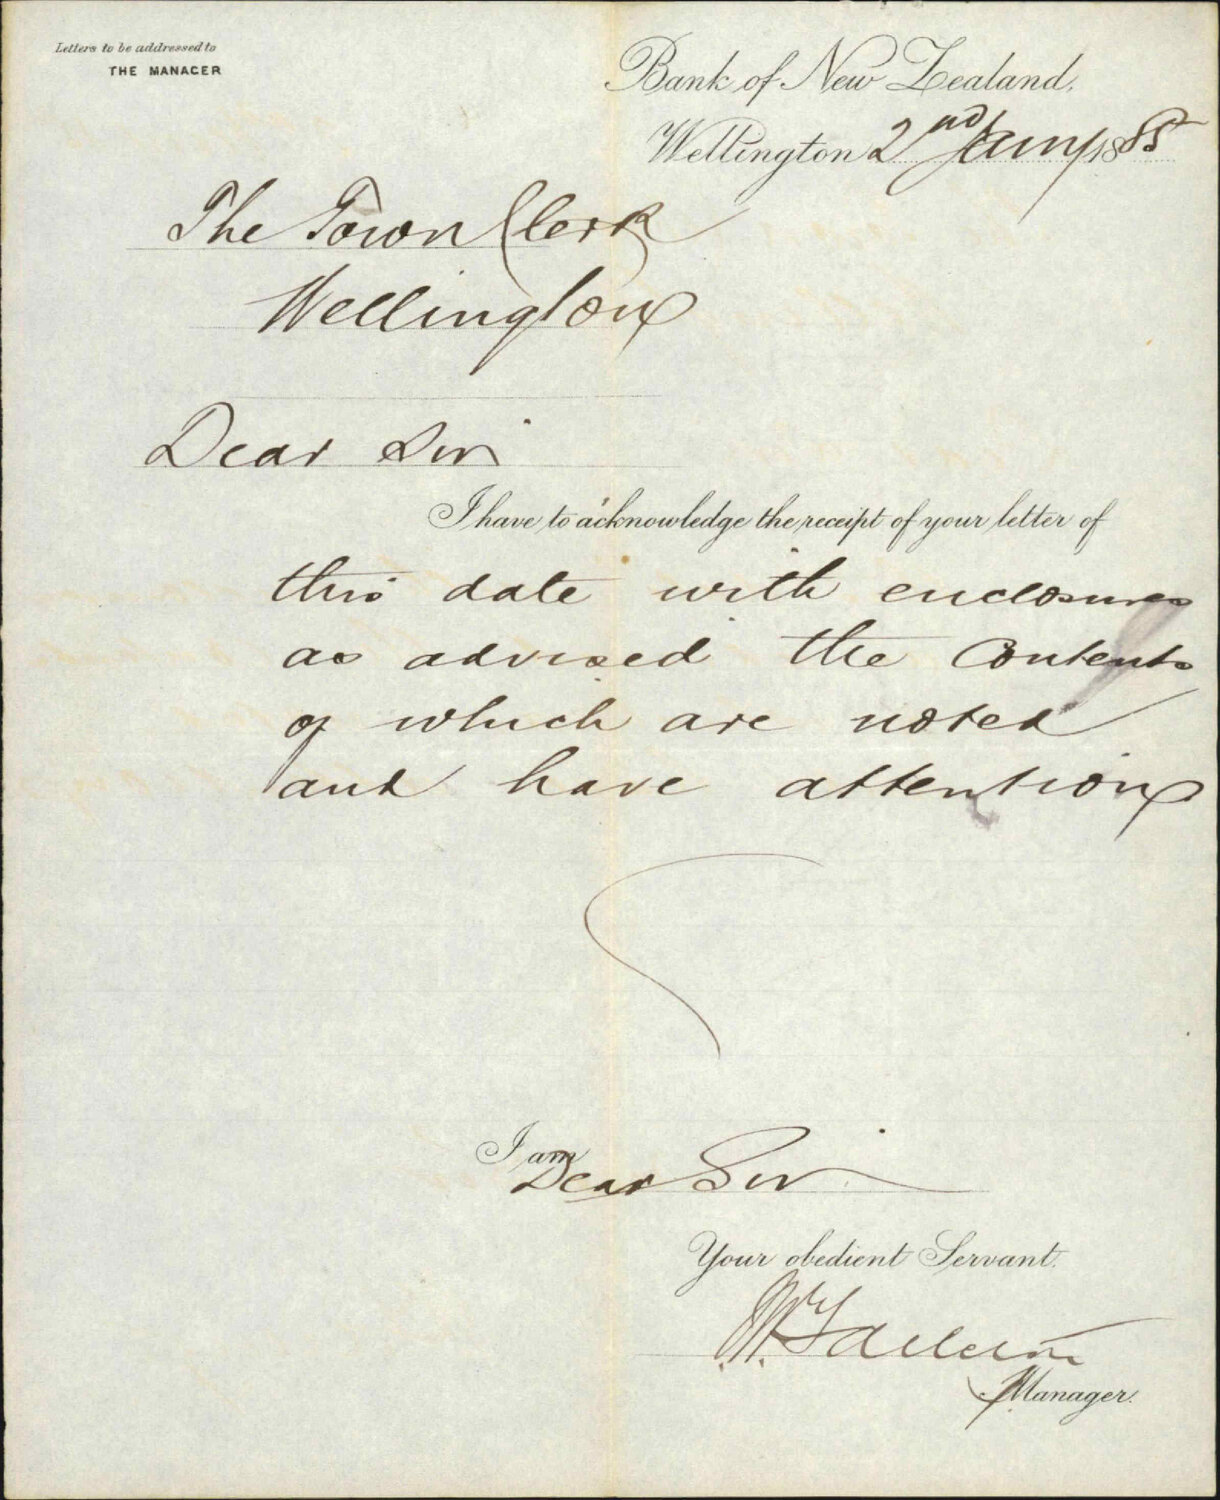 Letters to be addressed to
THE MANAGER
Bank of New Zealand,
Wellington 2nd Jany 1885
The Town Clerk
Wellington
Dear Sir
I have to acknowledge the receipt of your letter of
this date with enclosures
as advised the Contents
of which are noted
and have attention
I am
Dear Sir
Your obedient Servant.
Manager.